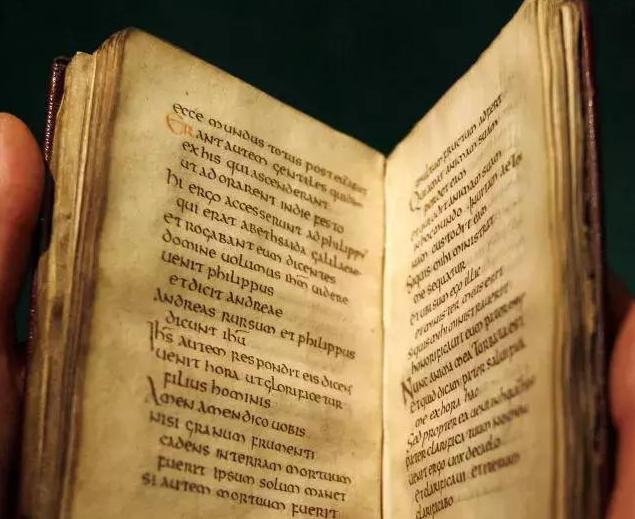 ecce mundus totus post eum
Erant autem gentiles quidam
ex his qui ascenderant
ut adorarent in die festo
hi ergo accesserunt ad philippū
qui erat a bethsaida galilaeae
et rogabant eum dicentes
domine uolumus ihm uidere
uenit philippus
et dicit andreae
andreas rursum et philippus
dicunt ihu
Ihs autem respondit eis dicens
uenit hora ut glorificetur
filius hominis
Amen amen dico uobis
nisi granum frumenti
cadens in terram mortuum
fuerit ipsum solum manet
si autem mortuum fuerit
fructum adfert
Qui amat animam suam
perdet eam
et qui odit animam suam
in hoc mundo
eam
Si quis mihi ministrat
me sequatur
et ubi sum ego illic
et minister meus erit
Si quis mihi ministrauerit
honorificabit eum pater meus
Nunc anima mea turbata est
et quid dicam pater salui
me ex hora hac
Sed propter ea ueni in
pater clarifica tuum nomen
uenit ergo uox de caelo
et clarificaui et iterum
clarificabo